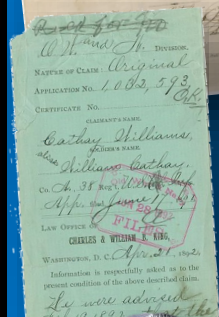 W. and N. DIVISION.
NATURE OF CLAIM: Original
APPLICATION NO. 1,032,593
CERTIFICATE NO.
CLAIMANT'S NAME.
Cathay Williams,
SOLDIER'S NAME.
alias William Cathay.
Co. A, 38 Reg't, U.S. Inf
App. June 17 91
FILED
LAW OFFICE OF
CHARLES & WILLIAM B. KING,
WASHINGTON, D. C., Apr. 21, 1892
Information is respectfully asked as to the
present condition of the above described claim.
We were advised
the